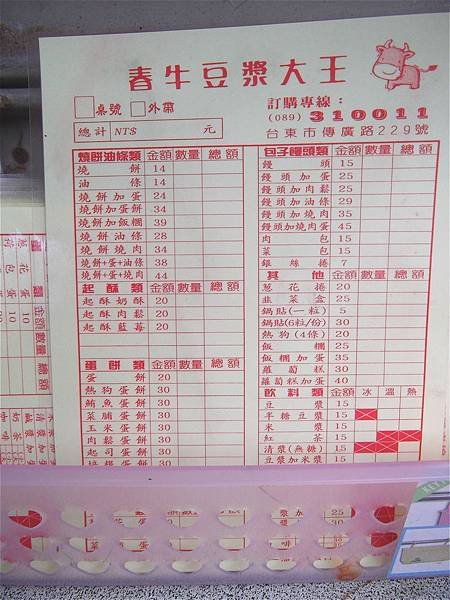 春牛豆漿大王
桌號 外帶
總計 NT$ 元
訂購專線：
(089) 310011
台東市傳廣路229號
燒餅油條類 金額 數量 總額
燒餅 14
油條 14
燒餅加蛋 24
燒餅加蛋餅 34
燒餅加飯糰 39
燒餅油條 28
燒餅燒肉 34
燒餅+蛋+油條 38
燒餅+蛋+燒肉 44
起酥類 金額 數量 總額
起酥奶酥 20
起酥肉鬆 20
起酥藍莓 20
蛋餅類 金額 數量 總額
蛋餅 20
熱狗蛋餅 30
鮪魚蛋餅 30
菜脯蛋餅 30
玉米蛋餅 30
肉鬆蛋餅 30
起司蛋餅 30
包子饅頭類 金額 數量 總額
饅頭 15
饅頭加蛋 25
饅頭加肉鬆 25
饅頭加油條 29
饅頭加燒肉 35
饅頭加燒肉蛋 45
肉包 15
菜包 15
銀絲捲 7
其他 金額 數量 總額
蔥花捲 20
韭菜盒 25
鍋貼(一粒) 5
鍋貼(6粒/份) 30
熱狗(4條) 20
飯糰 25
飯糰加蛋 35
蘿蔔糕 30
蘿蔔糕加蛋 40
飲料類 金額 冰 溫 熱
豆漿 15
半糖豆漿 15
米漿 15
紅茶 15
清漿(無糖) 15
豆漿加米漿 15
漿加 25
漿 30
菜蛋